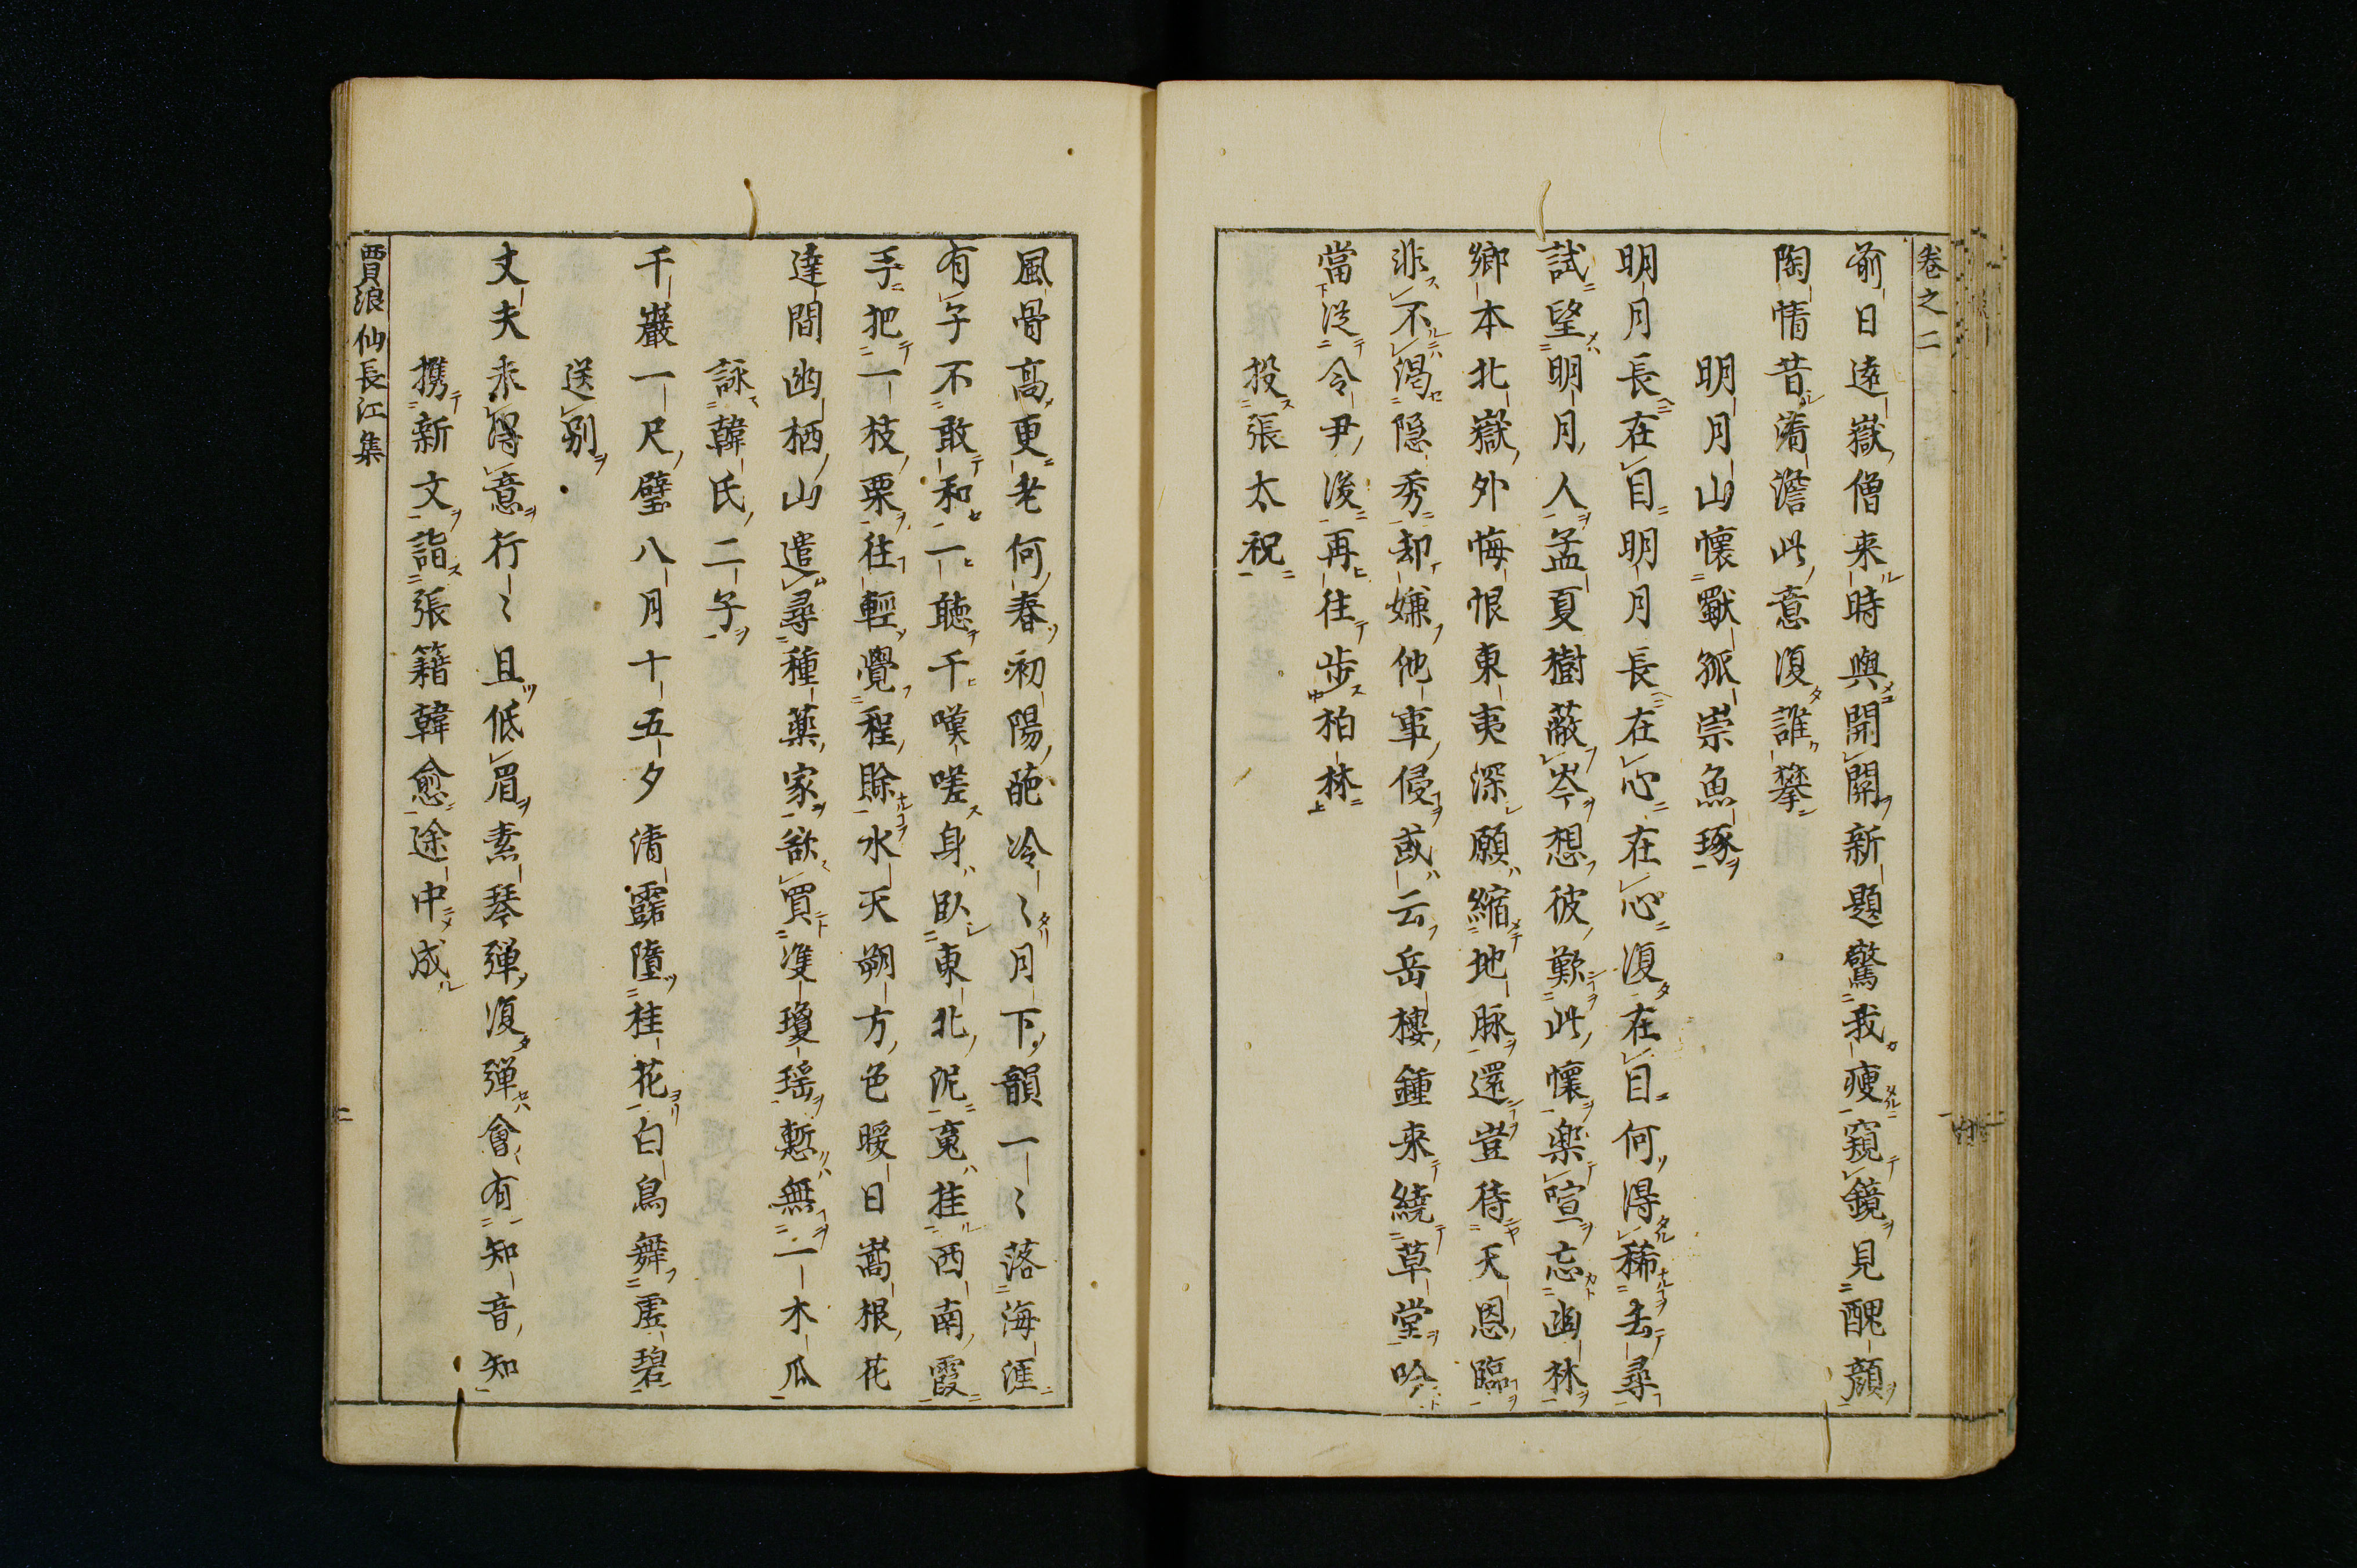 卷之二
前日遠嶽僧来時與開關新題驚我瘦窺鏡見醜顔
陶情昔清澹此意復誰攀
明月山懷獨孤崇魚琢
明月長在目明月長在心在心復在目何得稀去尋
試望明月人孟夏樹蔽岑想彼歎此懷楽喧忘幽林
鄉本北嶽外悔恨東夷深願縮地脉還豈待天恩臨
非不渇隠秀却嫌他事侵或云岳樓鍾来繞草堂吟
當従令尹後再往歩柏林
投張太祝
風骨高更老何春初陽葩冷〻月下韻一〻落海涯
有子不敢和一聴千嘆嗟身臥東北泥䰟挂西南霞
手把一枝栗往輕覺程賖水天朔方色暖日嵩根花
達間幽栖山遣尋種薬家欲買雙瓊瑶慙無一木瓜
詠韓氏二子
千巖一尺璧八月十五夕清露墮桂花白鳥舞虚碧
送別
丈夫未得意行〻且低眉素琴弾復弾會有知音知
携新文詣張籍韓愈途中成
賈浪仙長江集
二